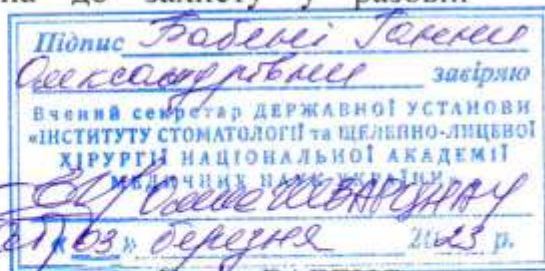 до захисту у разовій
Підпис Бабені Ганни
Олександрівни засвіряю
Вчений секретар ДЕРЖАВНОЇ УСТАНОВИ
«ІНСТИТУТУ СТОМАТОЛОГІЇ та ЩЕЛЕПНО-ЛИЦЕВОЇ
ХІРУРГІЇ НАЦІОНАЛЬНОЇ АКАДЕМІЇ
МЕДИЧНИХ НАУК УКРАЇНИ»
«03» березня 2023 р.